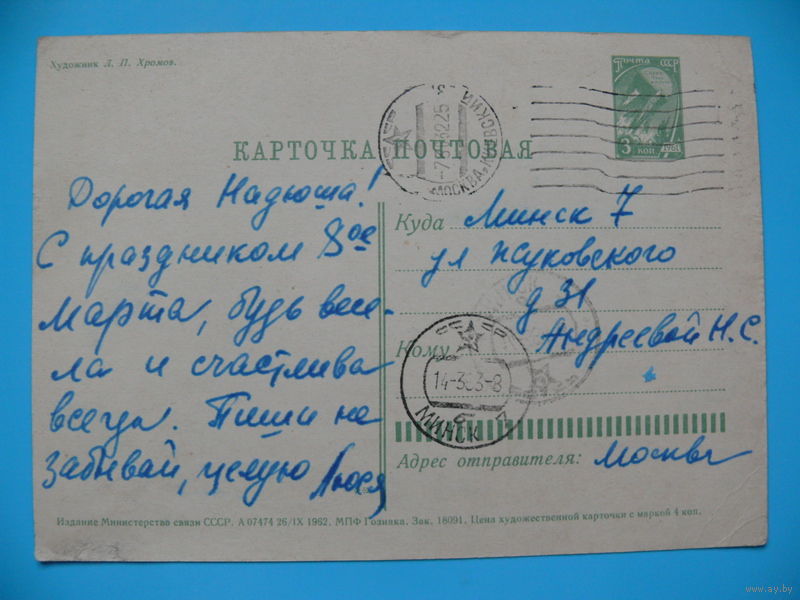 Художник Л. П. Хромов.
ПОЧТА СССР
3 коп.
1961
КАРТОЧКА ПОЧТОВАЯ
МОСКВА,
Дорогая Надюша!
С праздником 8ое
марта, будь весе-
ла и счастлива
всегда. Пиши не
забывай, целую Люся
Куда Минск 7
ул Жуковского
д 31
Кому Андреевой Н.С.
14-363-8
МИНСК 7
Адрес отправителя: Москва
Издание Министерства связи СССР. А 07474 26/IX 1962. МПФ Гознака. Зак. 18091. Цена художественной карточки с маркой 4 коп.
www.ay.by